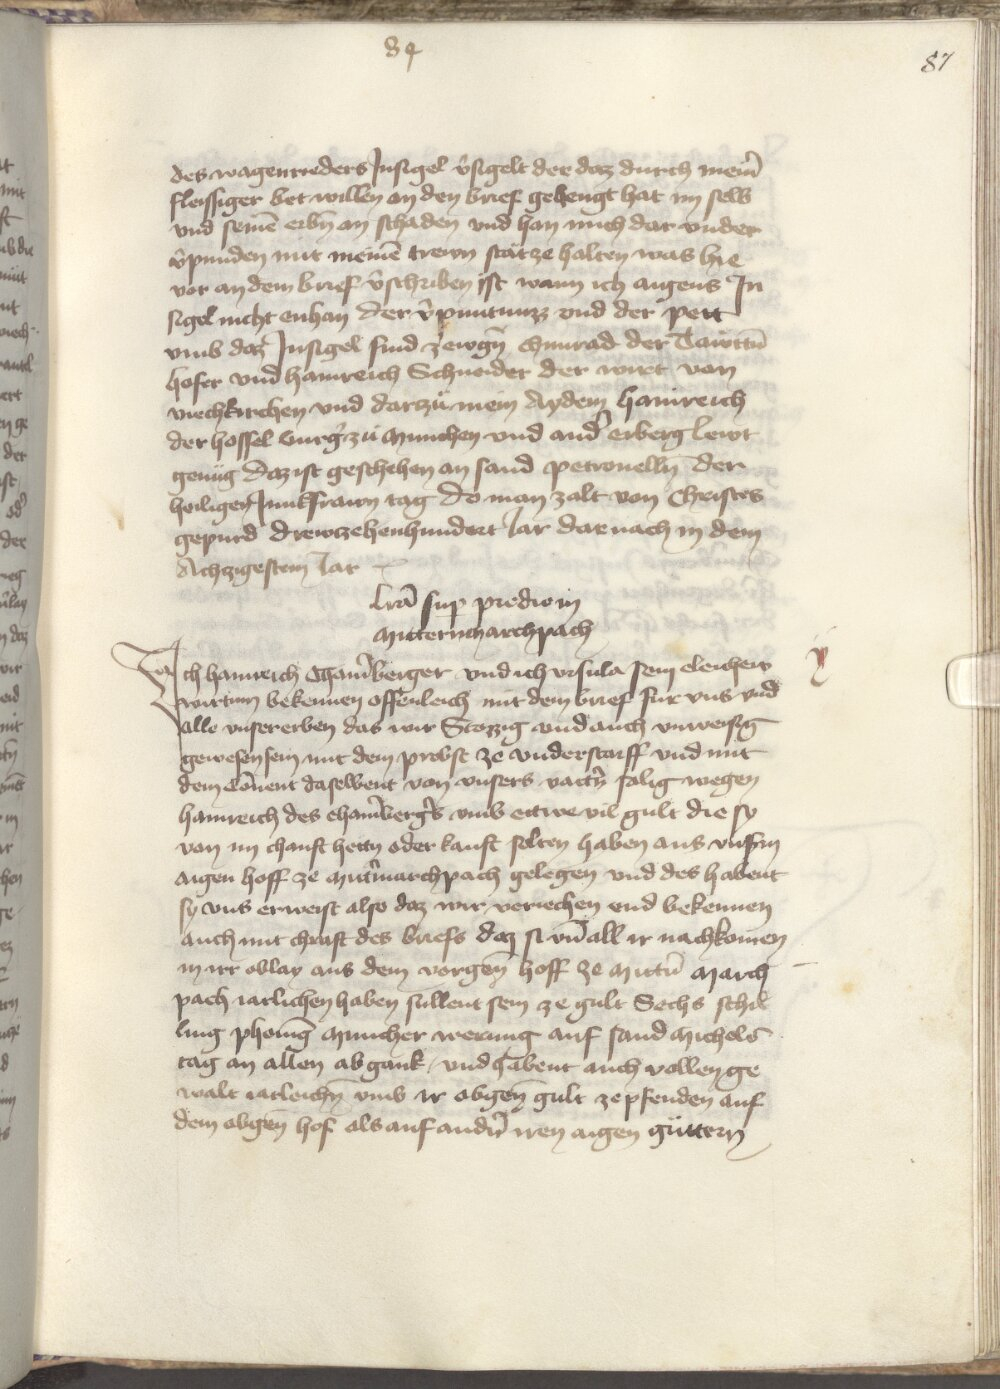 84
87
des wagenrieders Insigel v̂sigelt der daz durch mein̄
fleissiger bet willen an den brief gehengt hat im selb
vnd seinē erbn̄ an schaden vnd han mich dar vnder
v̂punden mit meinē trewn stät ze halten was hie
vor an dem brief v̂schriben ist wann ich aigens In
sigel nicht enhan der v̂puntnuzz vnd der pett
vmb daz Insigel sind zewgn̄ Chunrad der
hofer vnd hainreich Schneider der wirt von
viechkirchen vnd darzü mein Aydem hainreich
der hossel burgˀ zü Munchen vnd andˀ erberg lewt
genüg Daz ist geschehen an sand petronelln̄ der
heiligen Junkfrawn tag do man zalt von Christes
gepurd drewzehenhundert Iar dar nach in dem
Achzigestem Iar
lr̄a sup predio in
Mittermarchpach
Ich hainreich Cham̂berger vnd ich vrsula sein eleichew
wirtinn bekennen offenleich mit dem brief für vns vnd
alle vnser erben das wir Stözzig vnd auch vnweisig
gewesen sein mit dem probst ze vnderstorff vnd mit
dem Cōuent daselbent von vnsers vattˀn sälig wegen
hainreich des cham̂bergˀs vmb ettwe vil gült die sy
von im chauft hettn oder kauft solten haben aus vnsˀm
aigen hoff ze Mittˀmarchpach gelegen vnd des habent
sy vns erweist also daz wir veriechen vnd bekennen
auch mit chraft des briefs daz si vn̄ all ir nachkomen
in irr oblay aus dem vorgen̄ hoff ze Mittˀn March
pach iarlichen haben sullent sein ze gült Sechs schil
ling pheniḡ Muncher werung auf sand Michels
tag an allen abgank vnd habent auch vollen ge
walt iarleichn̄ vmb ir obgen̄ gült ze pfenden auf
dem obgen̄ hof als auf andˀn iren aigen güttern